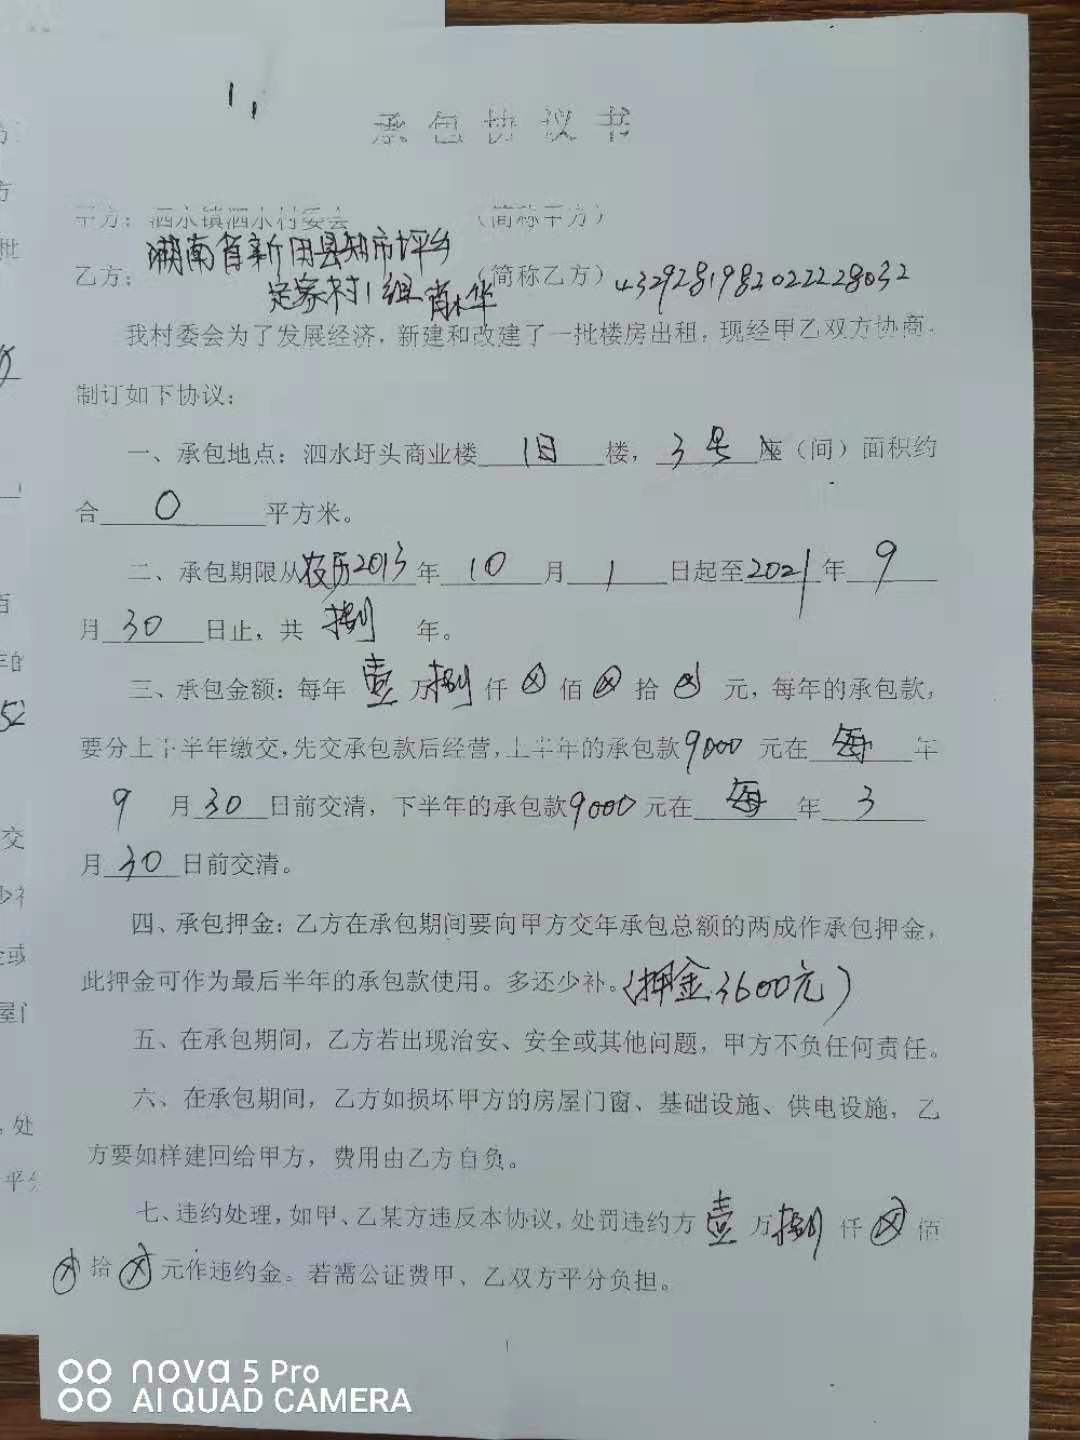 1,
承包协议书
甲方：泗水镇泗水村委会 （简称甲方）
湖南省新田县知市坪乡
乙方： （简称乙方）4329281982022228032
定家村1组肖木华
我村委会为了发展经济，新建和改建了一批楼房出租，现经甲乙双方协商，
制订如下协议：
一、承包地点：泗水圩头商业楼 旧 楼， 3号 座（间）面积约
合 0 平方米。
二、承包期限从农历2013年 10 月 1 日起至2021年 9
月 30 日止，共 捌 年。
三、承包金额：每年 壹 万捌 仟 ⊗ 佰 ⊗ 拾 ⊗ 元，每年的承包款，
要分上下半年缴交，先交承包款后经营，上半年的承包款9000 元在 每 年
9 月 30 日前交清，下半年的承包款9000元在 每 年 3
月 30 日前交清。
四、承包押金：乙方在承包期间要向甲方交年承包总额的两成作承包押金，
此押金可作为最后半年的承包款使用。多还少补。（押金3600元）
五、在承包期间，乙方若出现治安、安全或其他问题，甲方不负任何责任。
六、在承包期间，乙方如损坏甲方的房屋门窗、基础设施、供电设施，乙
方要如样建回给甲方，费用由乙方自负。
七、违约处理，如甲、乙某方违反本协议，处罚违约方 壹 万捌 仟 ⊗ 佰
⊗ 拾 ⊗ 元作违约金。若需公证费甲、乙双方平分负担。
1
nova 5 Pro
AI QUAD CAMERA